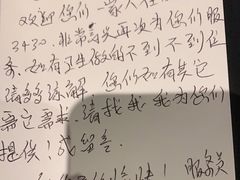 欢迎您们一家入住
3430. 非常高兴再次为您们服
务, 如有卫生做的不到不到位
请多多谅解, 您们如有其它
需它需求, 请找我, 我为您们
提供! 或留言.
快! 服务员